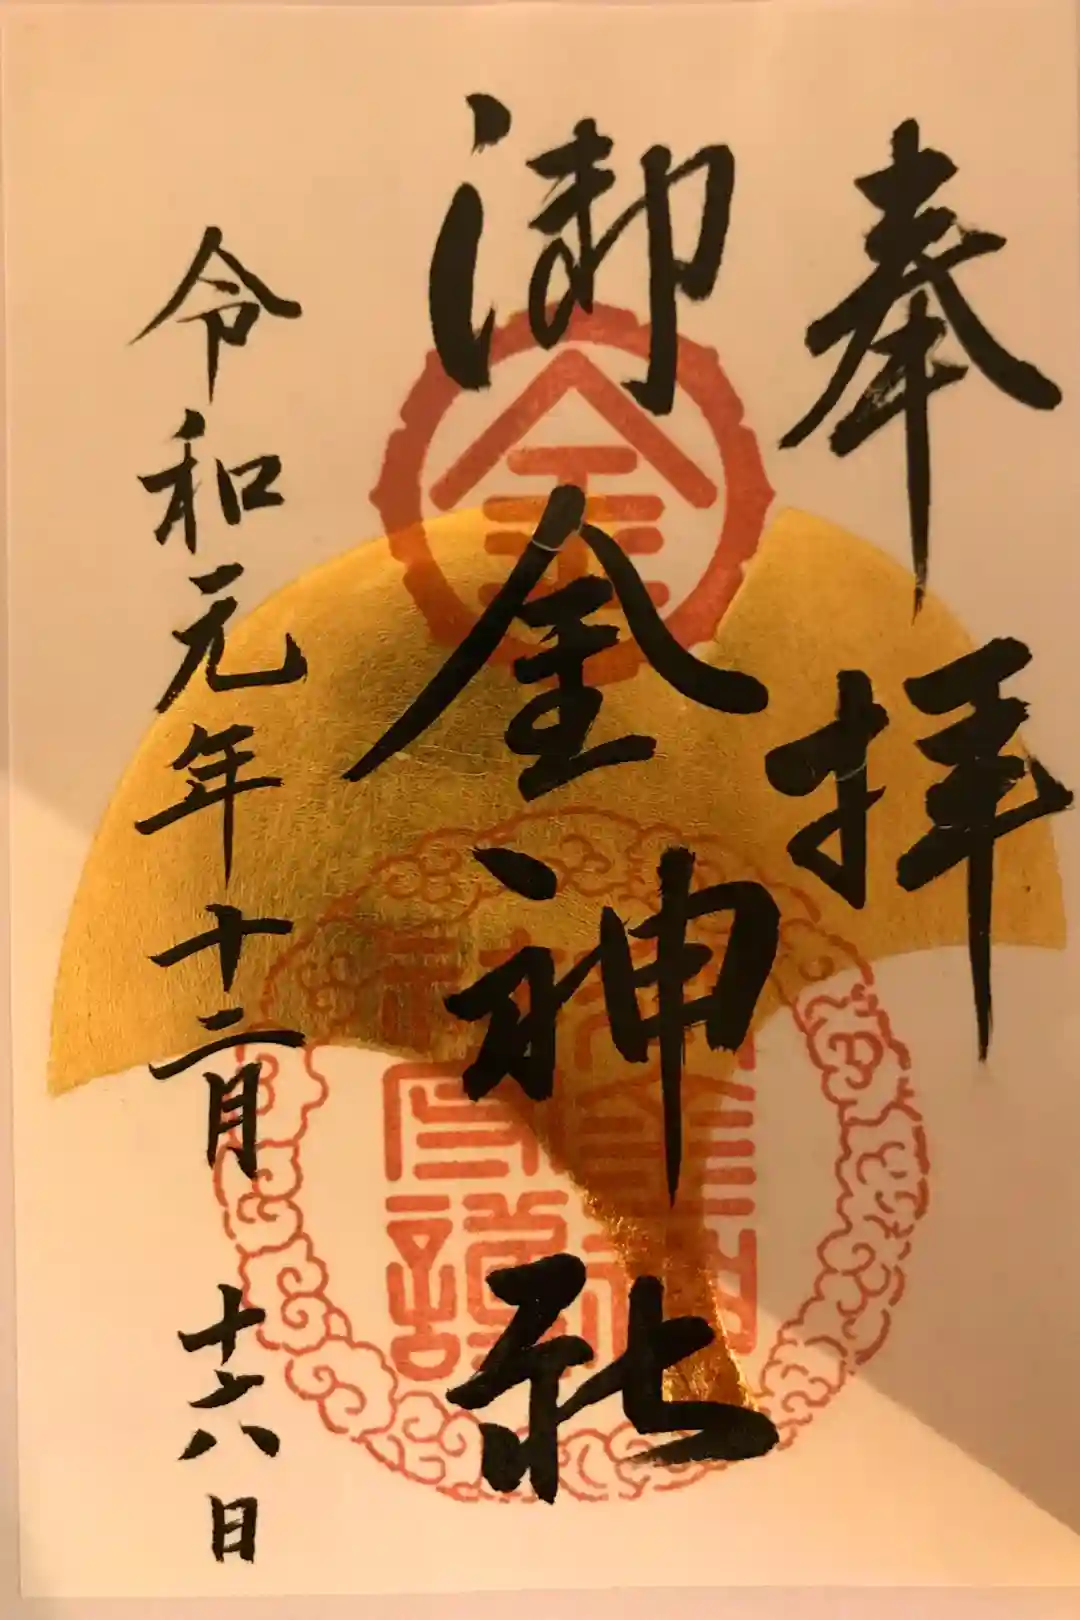 奉拝
御金神社
令和元年十二月十六日
金